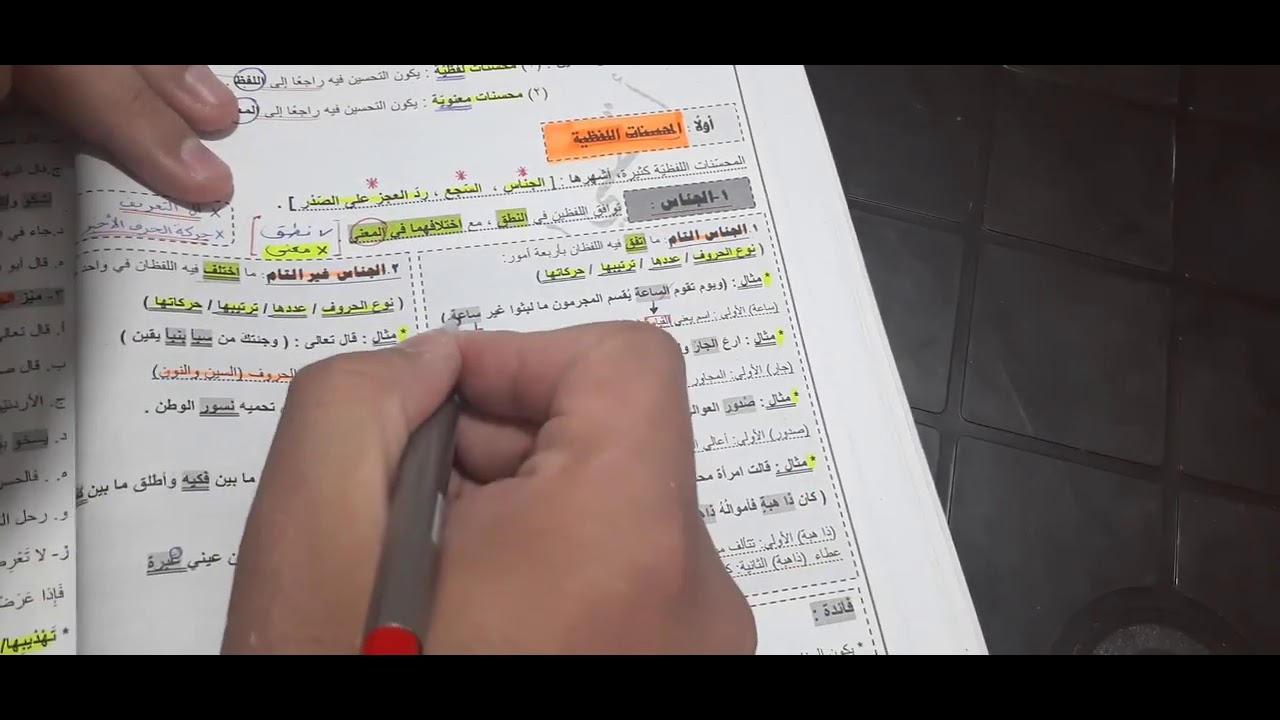 (١) محسنات لفظيّة : يكون التحسين فيه راجعًا إلى اللفظ
(٢) محسنات معنويّة : يكون التحسين فيه راجعًا إلى
أولًا : المحسنات اللفظية
المحسّنات اللفظيّة كثيرة، أشهرها : [ الجناس ، السّجع ، ردّ العجز على الصّدْر ] .
١-الجناس : توافق اللفظين في النطق ، مع اختلافهما في المعنى
✓ نطق
x معنى
ال التعريف
x حركة الحرف الأخير
١. الجناس التام : ما تفق فيه اللفظان بأربعة أمور:
( نوع الحروف / عددها / ترتيبها / حركاتها )
* مثال : (ويوم تقوم الساعة يُقسم المجرمون ما لبثوا غير ساعة )
(ساعة) الأولى : اسم يعني القيا
* مثال : ارع الجار و
(جار) الأولى: المجاور
* مثال : صُدور العوال
(صدور) الأولى: أعالي
* مثال : قالت امرأة
( كان ذا هبة فأمواله
(ذا هبة) الأولى: تتألف
عطاء (ذاهبة) الثانية:
فائدة :
* يكون
٢. الجناس غير التام : ما اختلف فيه اللفظان في واحد
( نوع الحروف / عددها / ترتيبها / حركاتها )
* مثال : قال تعالى : ( وجئتك من سبأ بنبأ يقين )
الحروف (السين والنون)
تحميه نسور الوطن .
ما بين فكيه وأطلق ما بين
عيني عَبرة
ج.قال
د.جاء في
ه. قال أبو
٣- ميّز
أ. قال تعالى
ب. قال
ج. الأردني
د. يسخو
ه. فالحس
و. رحل
ز- لا تَعْرِض
فَإِذا عَرَضْ
* تَهْذيبِها/